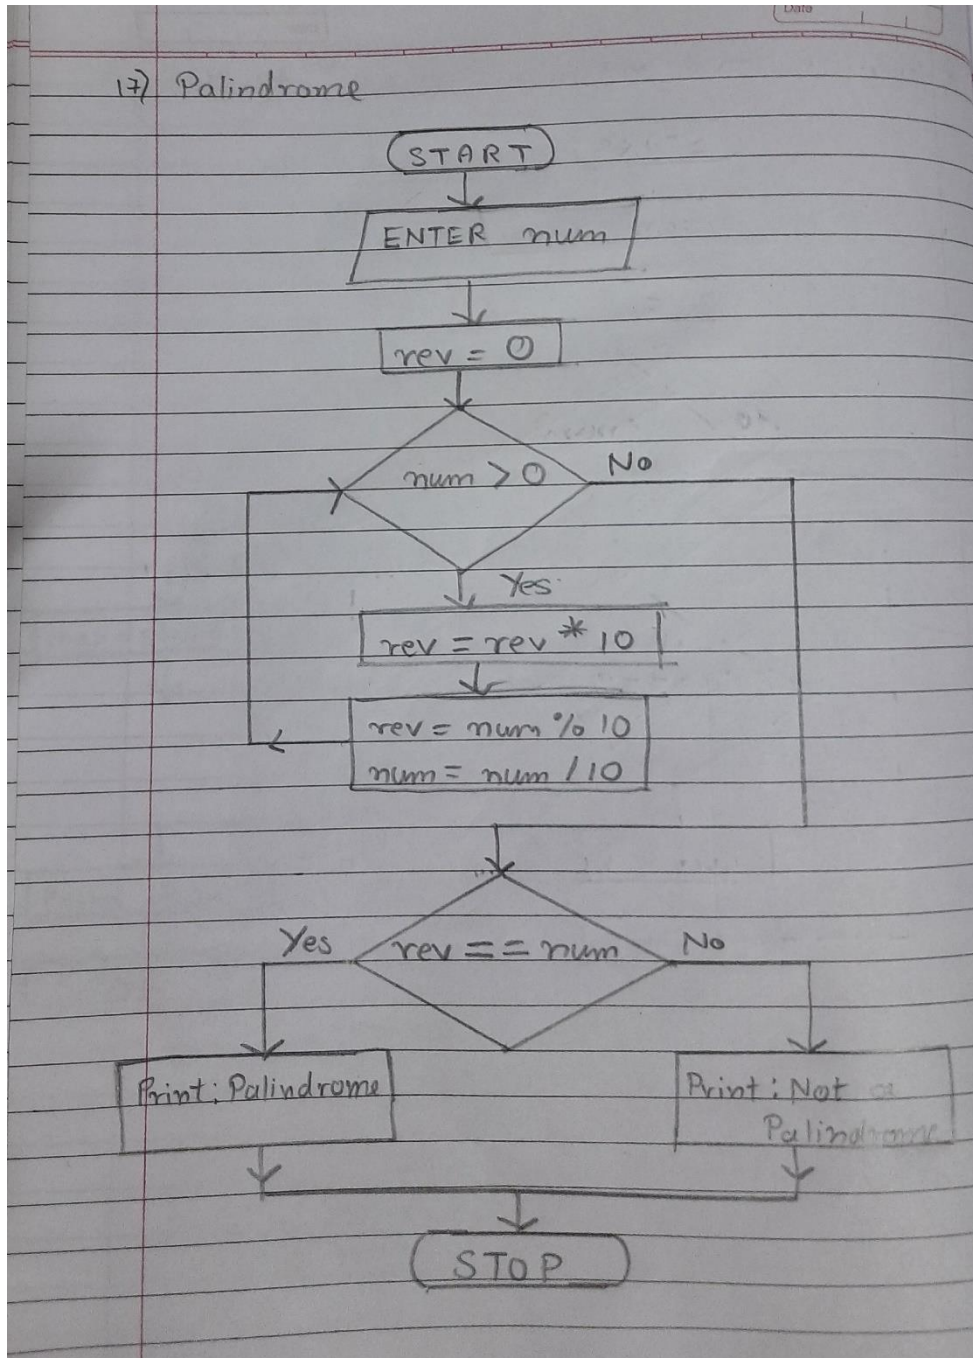 Date
17) Palindrome
START
ENTER num
rev = 0
num > 0
No
Yes
rev = rev * 10
rev = num % 10
num = num / 10
Yes
rev == num
No
Print: Palindrome
Print: Not a
Palindrome
STOP